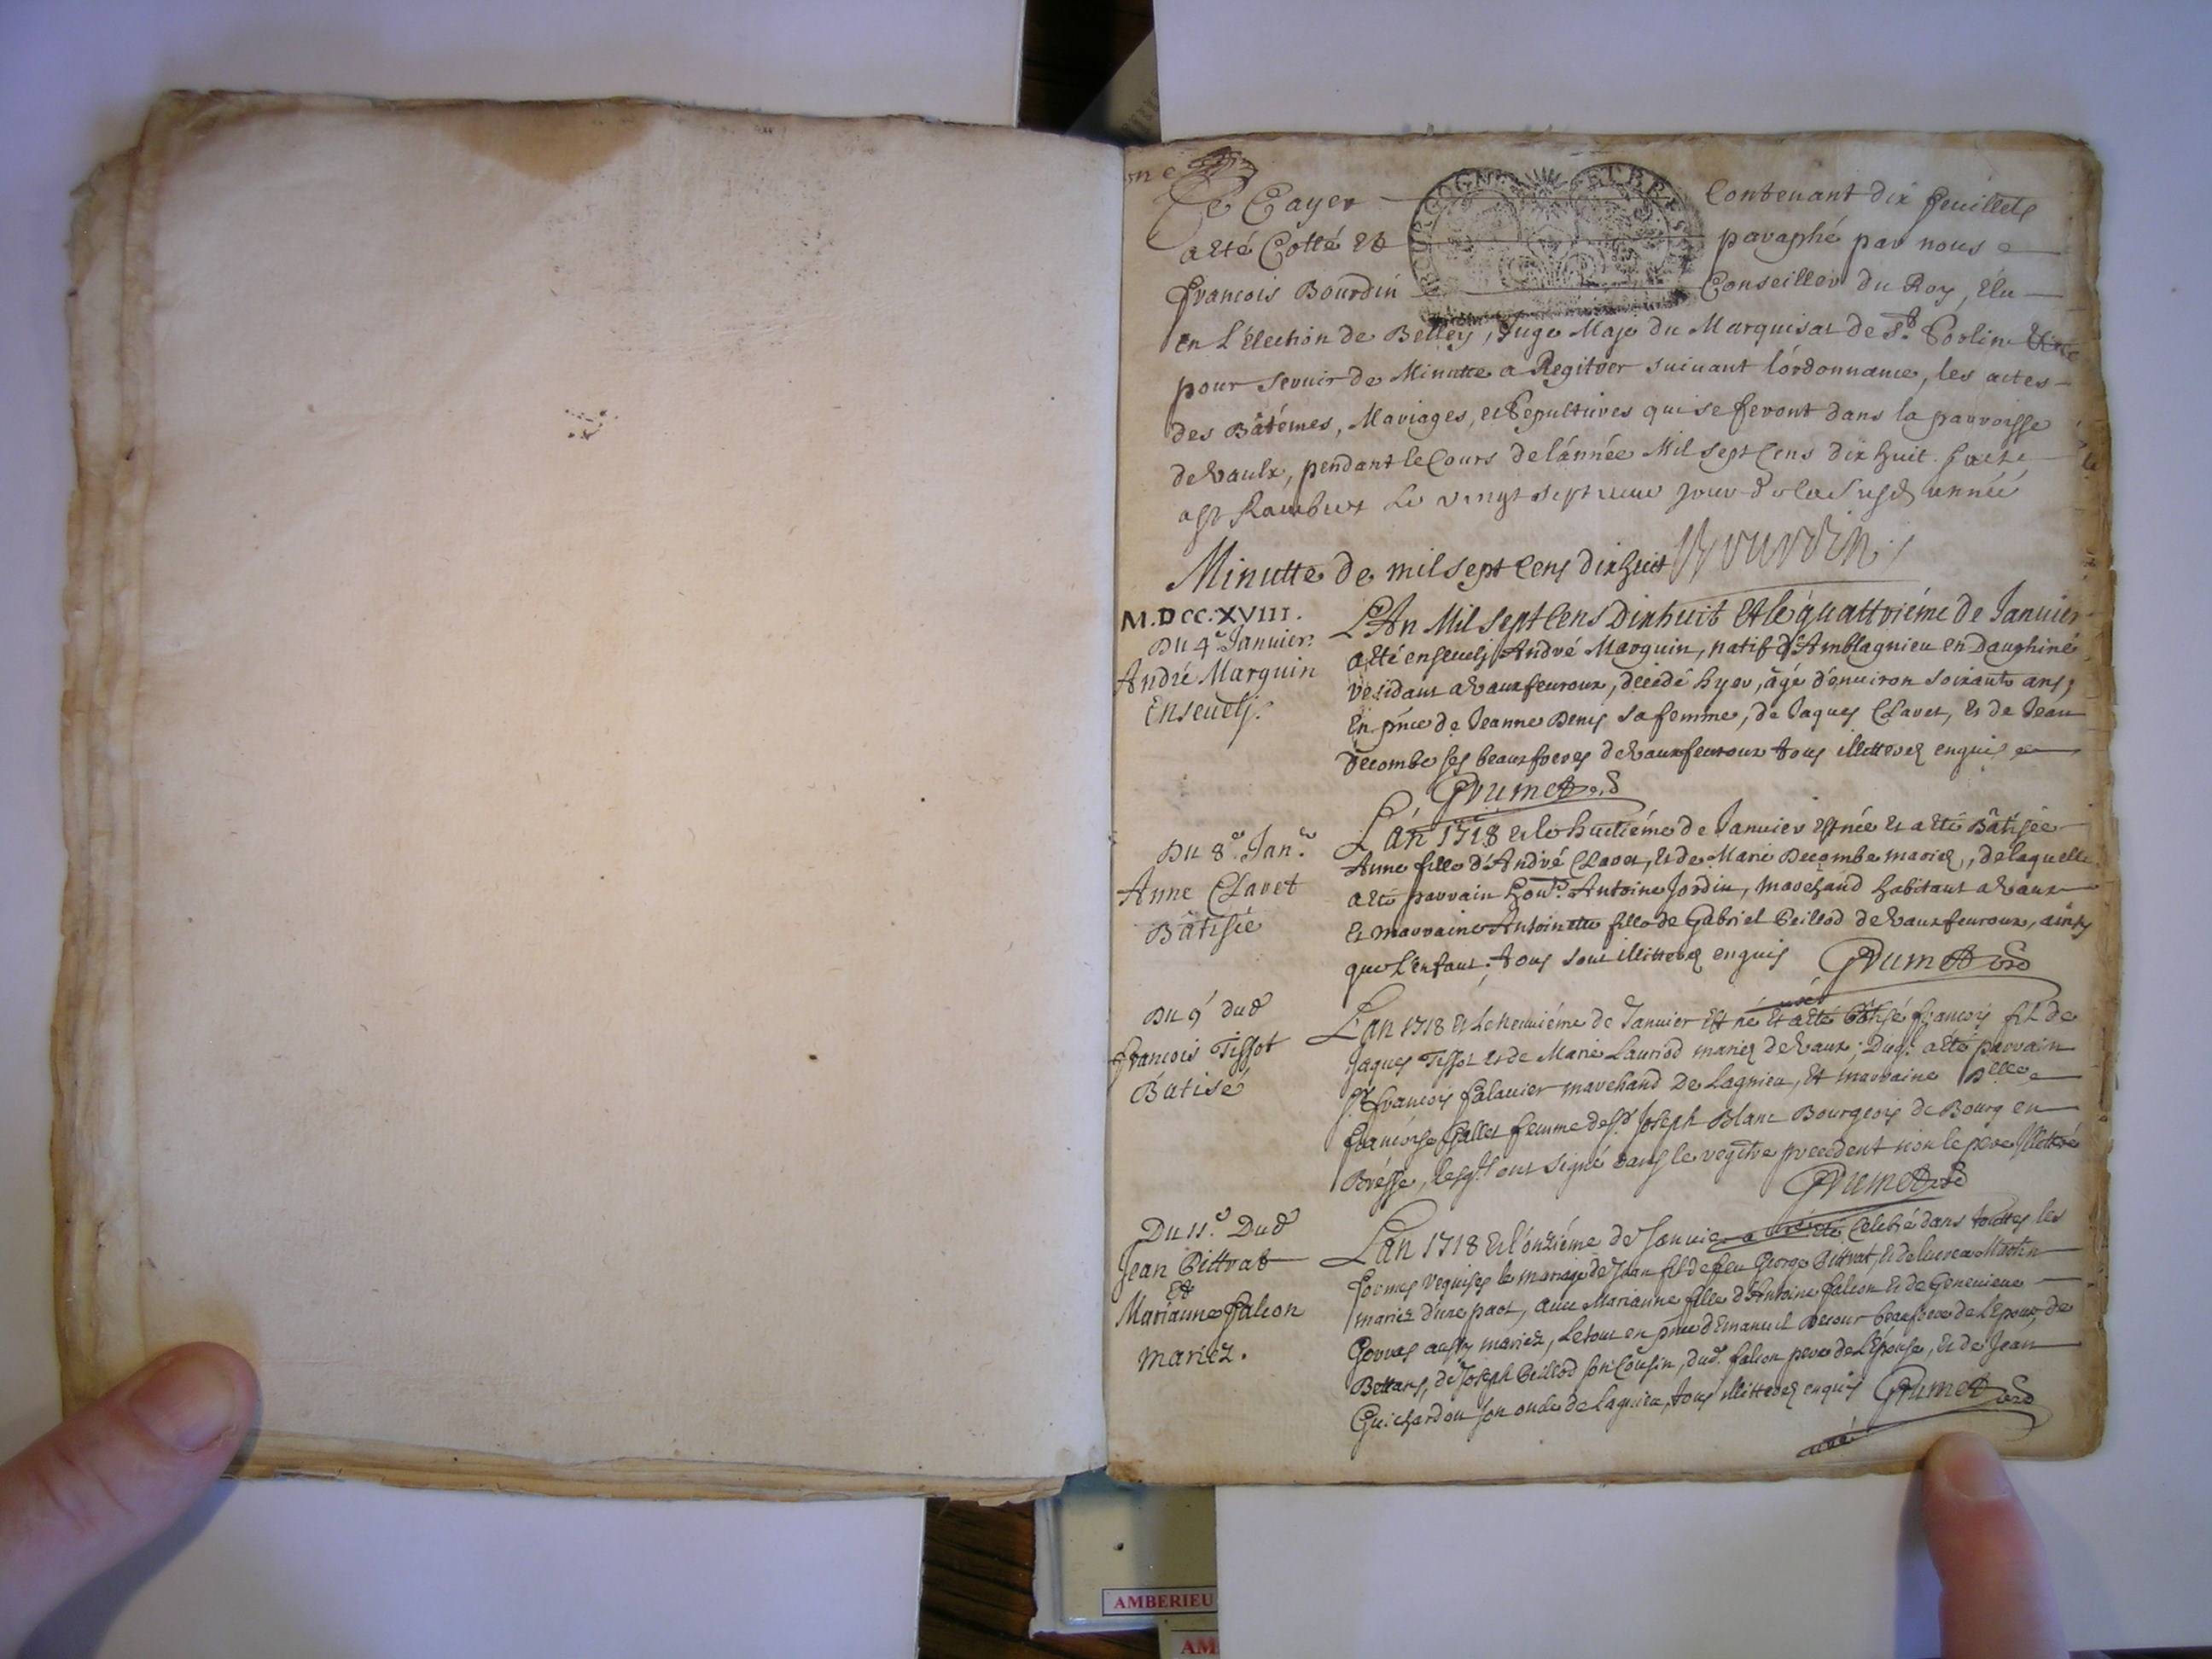 Ce Cayer contenant dix feuillets
a eté Cotté et paraphé par nous
françois Bourdin Conseiller du Roy, élu
en L'élection de Belley, Juge Maje du Marquisat de St. Sorlin
pour servir de Minutte a Regitrer suivant l'órdonnance, les actes
des Bâtémes, Mariages, et Sepultures qui se feront dans la parroisse
de Vaulx, pendant le Cours de l'année Mil sept Cens dix huit. fait
a St Rambert Le vingt sept jour de la année
Bourdin
Minutte de mil sept Cens dix huit
M.DCC.XVIII.
Du 4e Janvier.
André Marguin
Ensevely.
L'An Mil sept Cens Dixhuit et le quattriéme de Janvier
a eté ensevely André Marguin, natif d'Amblagnieu en Dauphiné
residant a Vauxfevroux, decedé hyer, âgé d'environ soixante ans,
en pnce de Jeanne Denis sa femme, de Jaques Clavet, et de Jean
Decombe ses beauxfreres de Vauxfevroux tous illitterez enquis
Grumet
Du 8e. Janr.
Anne Clavet
Bâtisée
L'an 1718 et le huitiéme de Janvier est née et a eté Bâtisée
Anne fille d'André Clavet, et de Marie Decombe mariez, de laquelle
a eté parrain Antoine Jordin, marchand habitant a Vaux
et marraine Antoinette fille de Gabriel Peillod de Vauxfevroux, ainsy
que L'enfant; tous sont illitterez enquis Grumet
Du 9 dud
francois Tissot
Bâtisé
L'an 1718 et le neuviéme de Janvier est né et a eté Bâtisé françois fils de
Jaques Tissot et de Marie Lauriod mariez de Vaux; Duql. a eté parrain
Sr. françois falavier marchand de Lagnieu, et marraine Delle
françoise Gallet femme de Sr. Joseph Blanc Bourgeois de Bourg en
Bresse, lesqls ont signé dans le regitre precedent non le pere illittré
Grumet
Du 11e. Dud
Jean Pittrat
Et
Marianne falcon
mariez.
L'an 1718 et l'onziéme de Janvier a eté Celebré dans touttes les
formes requises le mariage de Jean fils de feu George Pittrat, et de Martin
mariez d'une part, avec Marianne fille d'Antoine falcon et de Genevieve
Gervas aussy mariez, le tout en pnce d'Emanuel Decour beaufrere de L'Epoux, de
Bettans, de Joseph Peillod son Cousin, dud. falcon pere de L'Epouse, et de Jean
Guichardon son oncle de Lagnieu, tous illitterez enquis Grumet
curé
AMBERIEU
AM